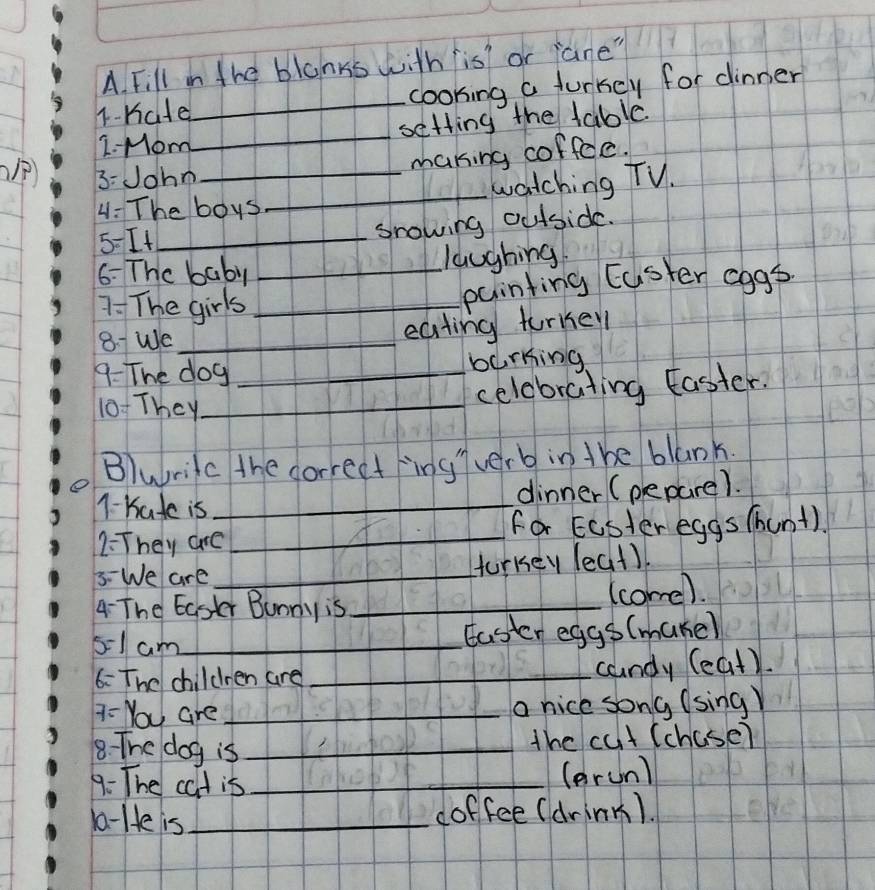 A. Fill in the blanks with "is" or "are"
1.- Kate ____________ cooking a turkey for dinner
2.- Mom ____________ setting the table.
3.- John ____________ making coffee.
4.- The boys ____________ watching TV.
5.- It ____________ snowing outside.
6.- The baby ____________ laughing.
7.- The girls ____________ painting Easter eggs.
8.- We ____________ eating turkey
9.- The dog ____________ barking
10.- They ____________ celebrating Easter.
B) write the correct "ing" verb in the blank.
1.- Kate is ____________ dinner (prepare).
2.- They are ____________ for Easter eggs (hunt).
3.- We are ____________ turkey (eat).
4.- The Easter Bunny is ____________ (come).
5.- I am ____________ Easter eggs (make)
6.- The children are ____________ candy (eat).
7.- You are ____________ a nice song (sing)
8.- The dog is ____________ the cat (chase)
9.- The cat is ____________ (run)
10.- He is ____________ coffee (drink).